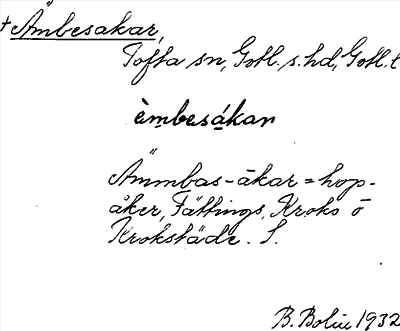 + Ämbesakar,
Tofta sn, Gotl. s. hd, Gotl. l
èmbesákar
Ämmbas-åkar = hop-
åker, Fättings, Kroks o
Krokstäde. S.
B. Bolin 1932